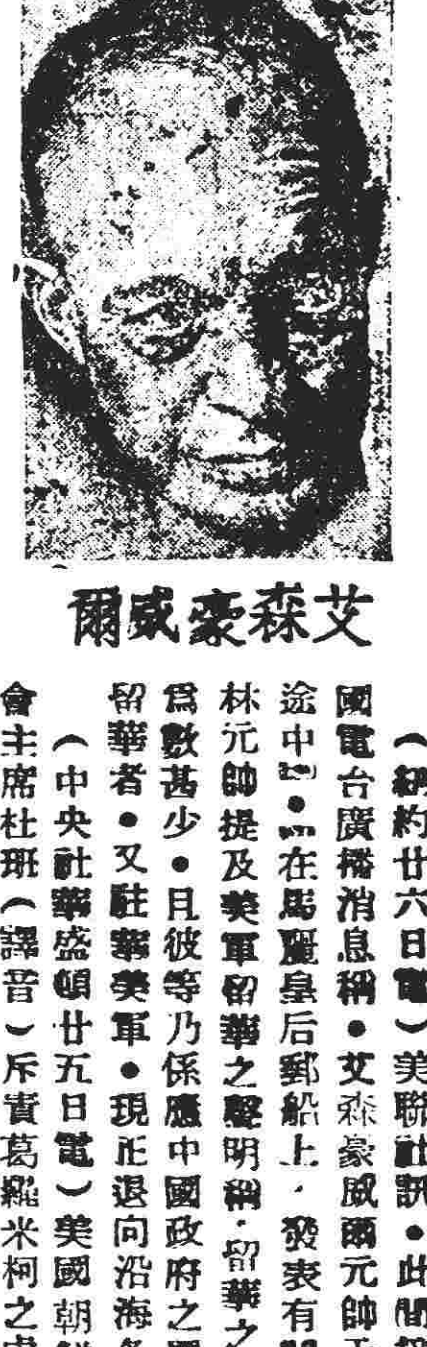 艾森豪威爾
（紐約廿六日電）美聯社訊●此間
國電台廣播消息稱●艾森豪威爾元帥
途中●在馬麗皇后郵船上，發表有
林元帥提及美軍留華之聲明稱，留華之
爲數甚少●且彼等乃係應中國政府之
留華者●又駐華美軍●現正退向沿海
（中央社華盛頓廿五日電）美國朝
會主席杜班（譯音）斥責葛羅米柯之